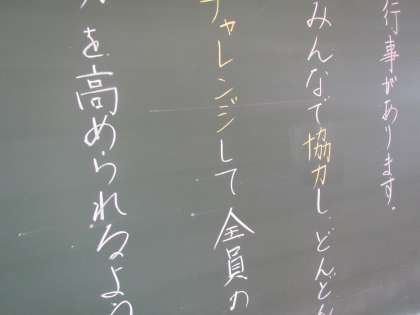 行事があります。
みんなで協力しどんどん
チャレンジして全員の
を高められるよう